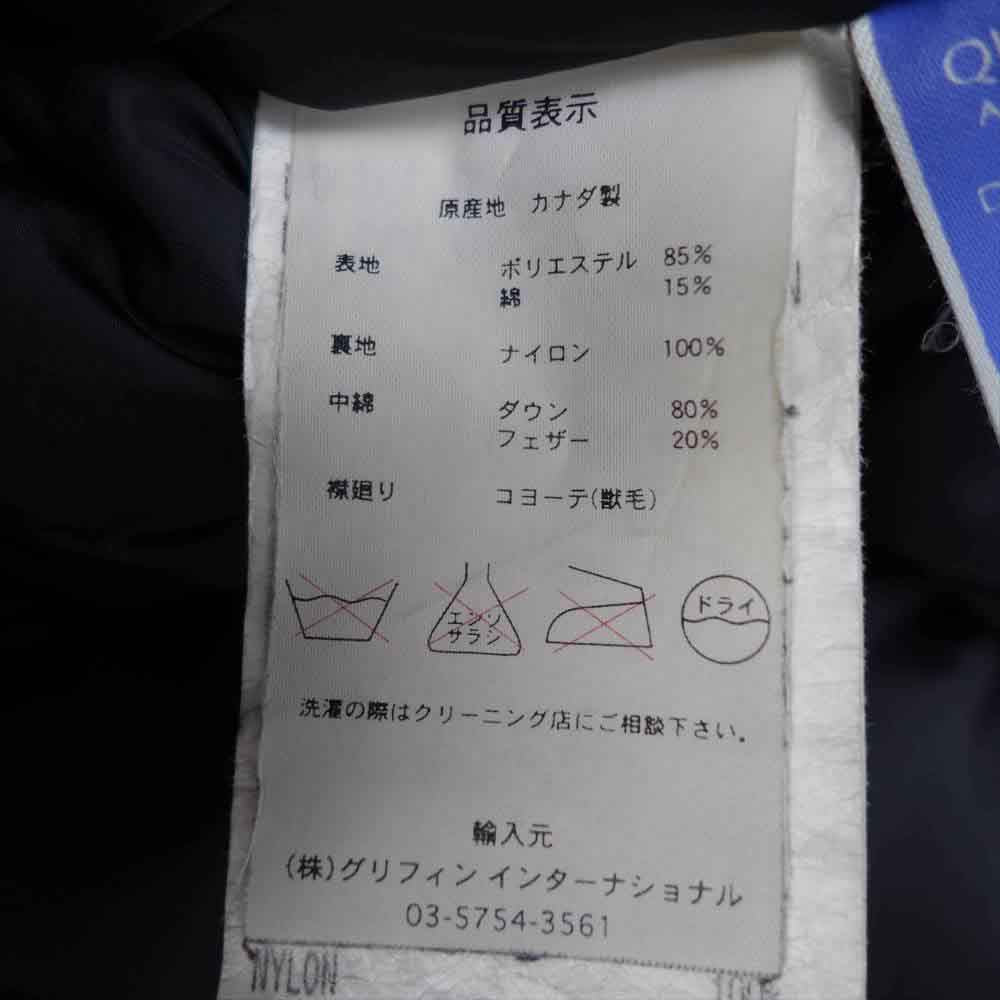 品質表示
原産地 カナダ製
表地 ポリエステル 85%
綿 15%
裏地 ナイロン 100%
中綿 ダウン 80%
フェザー 20%
襟廻り コヨーテ(獣毛)
エンソ
サラシ
ドライ
洗濯の際はクリーニング店にご相談下さい。
輸入元
(株)グリフィン インターナショナル
03-5754-3561
NYLON